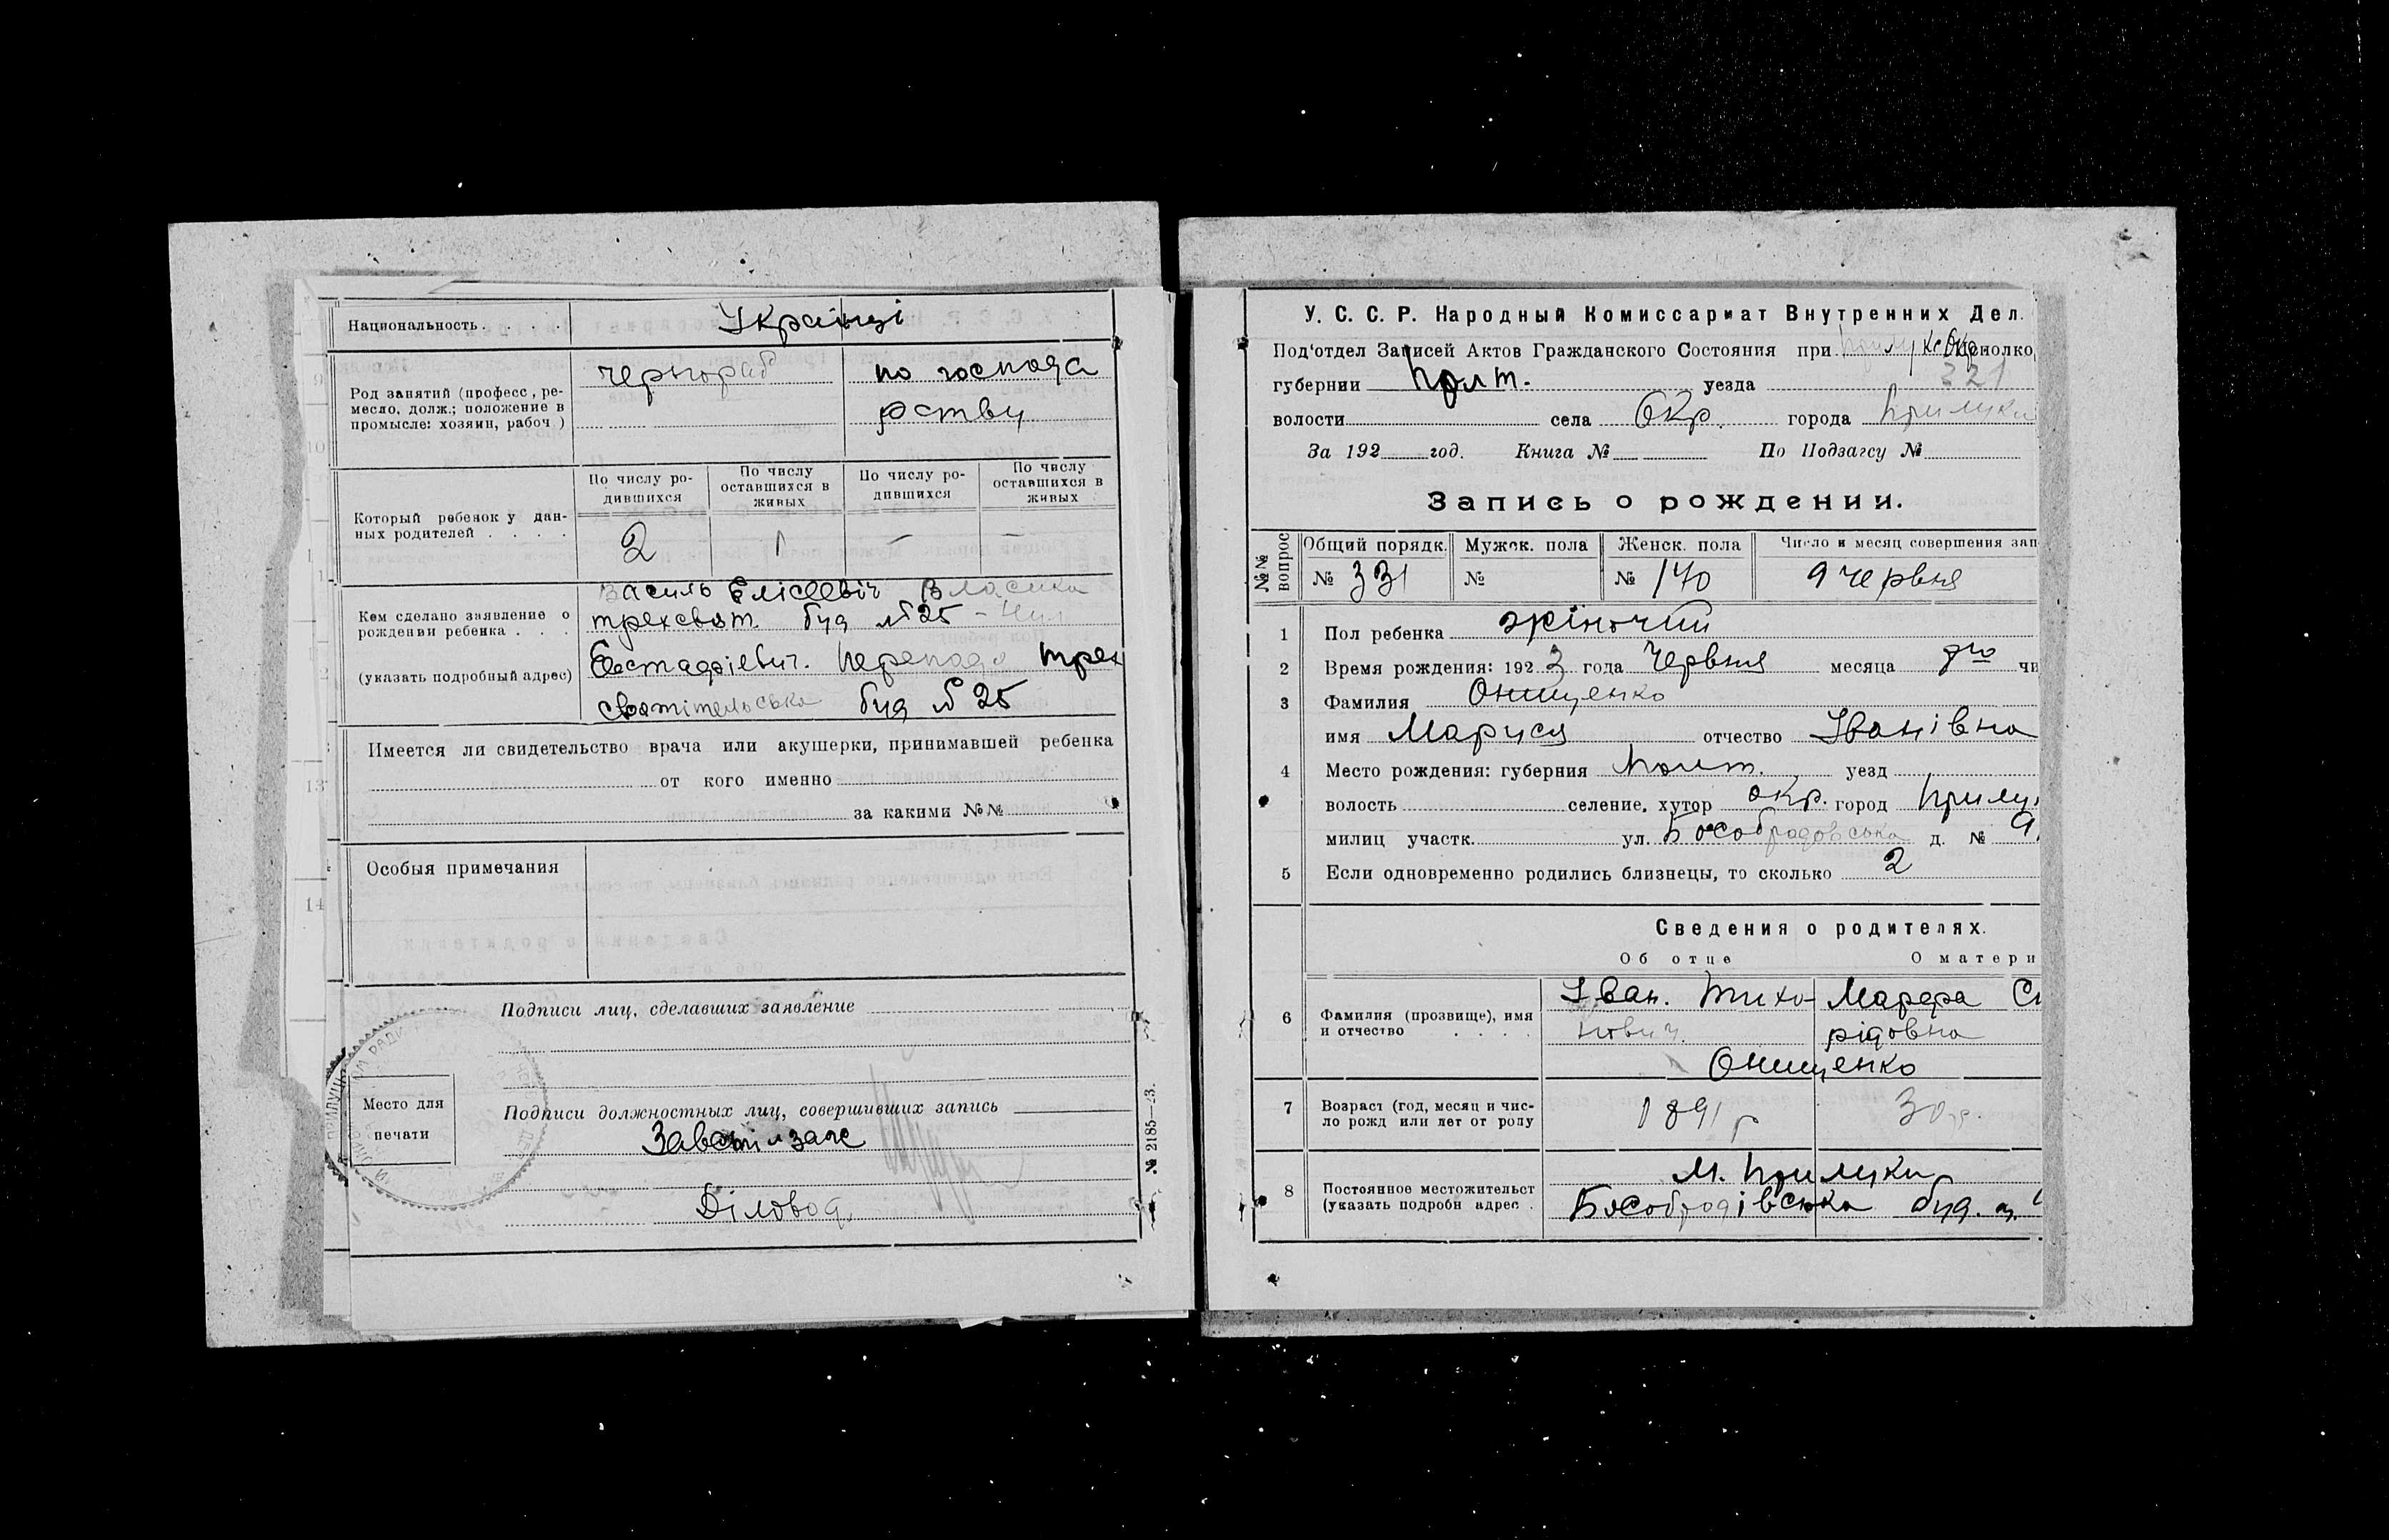 Национальность
Українці
Род занятий (професс, ре-
месло, долж.; положение в
промысле: хозяин, рабоч )
чернораб
по господа
рству
Который ребенок у дан-
ных родителей
По числу ро-
дившихся
По числу
оставшихся в
живых
По числу ро-
дившихся
По числу
оставшихся в
живых
2 1 — —
Кем сделано заявление о
рождении ребенка
(указать подробный адрес)
Василь Елісеевіч Власенко
трехсвят. буд №25 –
Евстафіевич. Трех
святительська буд № 25
Имеется ли свидетельство врача или акушерки, принимавшей ребенка
от кого именно
за какими №№
Особыя примечания
Подписи лиц, сделавших заявление
Место для
печати
Подписи должностных лиц, совершивших запись
Діловод
№ 2185—23.
У. С. С. Р. Народный Комиссариат Внутренних Дел.
Под‘отдел Записей Актов Гражданского Состояния при Исполко
губернии Полт. уезда 321
волости села Окр. города Прилуки
За 192 год. Книга № По Подзагсу №
Запись о рождении.
№№ вопрос
Общий порядк. Мужск. пола Женск. пола Число и месяц совершения зап
№ 331 № № 140 9 червня
1 Пол ребенка жіночий
2 Время рождения: 1923 года Червня месяца 8го чи
3 Фамилия Онищенко
имя Маруся отчество Іванівна
4 Место рождения: губерния Полт. уезд
волость селение, хутор окр. город Прилу
милиц участк. ул. Бособродовська д. № 9
5 Если одновременно родились близнецы, то сколько 2
Сведения о родителях.
Об отце О матери
6 Фамилия (прозвище), имя
и отчество
Іван. Тихо-
нович.
Марфа Сп
рідовна
Онищенко
7 Возраст (год, месяц и чис-
ло рожд или лет от роду
1891 р
30 р.
8 Постоянное местожительст
(указать подробн адрес
М. Прилуки
Бособродівська буд. н.